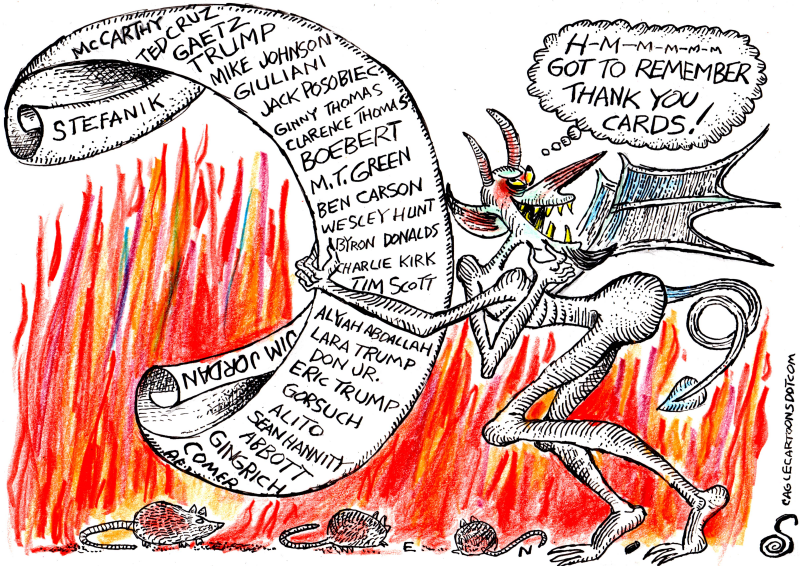 McCARTHY
TED CRUZ
GAETZ
TRUMP
MIKE JOHNSON
GIULIANI
JACK POSOBIEC
GINNY THOMAS
CLARENCE THOMAS
BOEBERT
M.T. GREEN
BEN CARSON
WESLEY HUNT
BYRON DONALDS
CHARLIE KIRK
TIM SCOTT
ALYIAH ABDALLAH
LARA TRUMP
DON JR.
ERIC TRUMP
GORSUCH
ALITO
SEAN HANNITY
ABBOTT
GINGRICH
COMER
STEFANIK
JIM JORDAN
H-M-M-M-M-M
GOT TO REMEMBER
THANK YOU
CARDS!
E N
CAGLECARTOONSDOTCOM